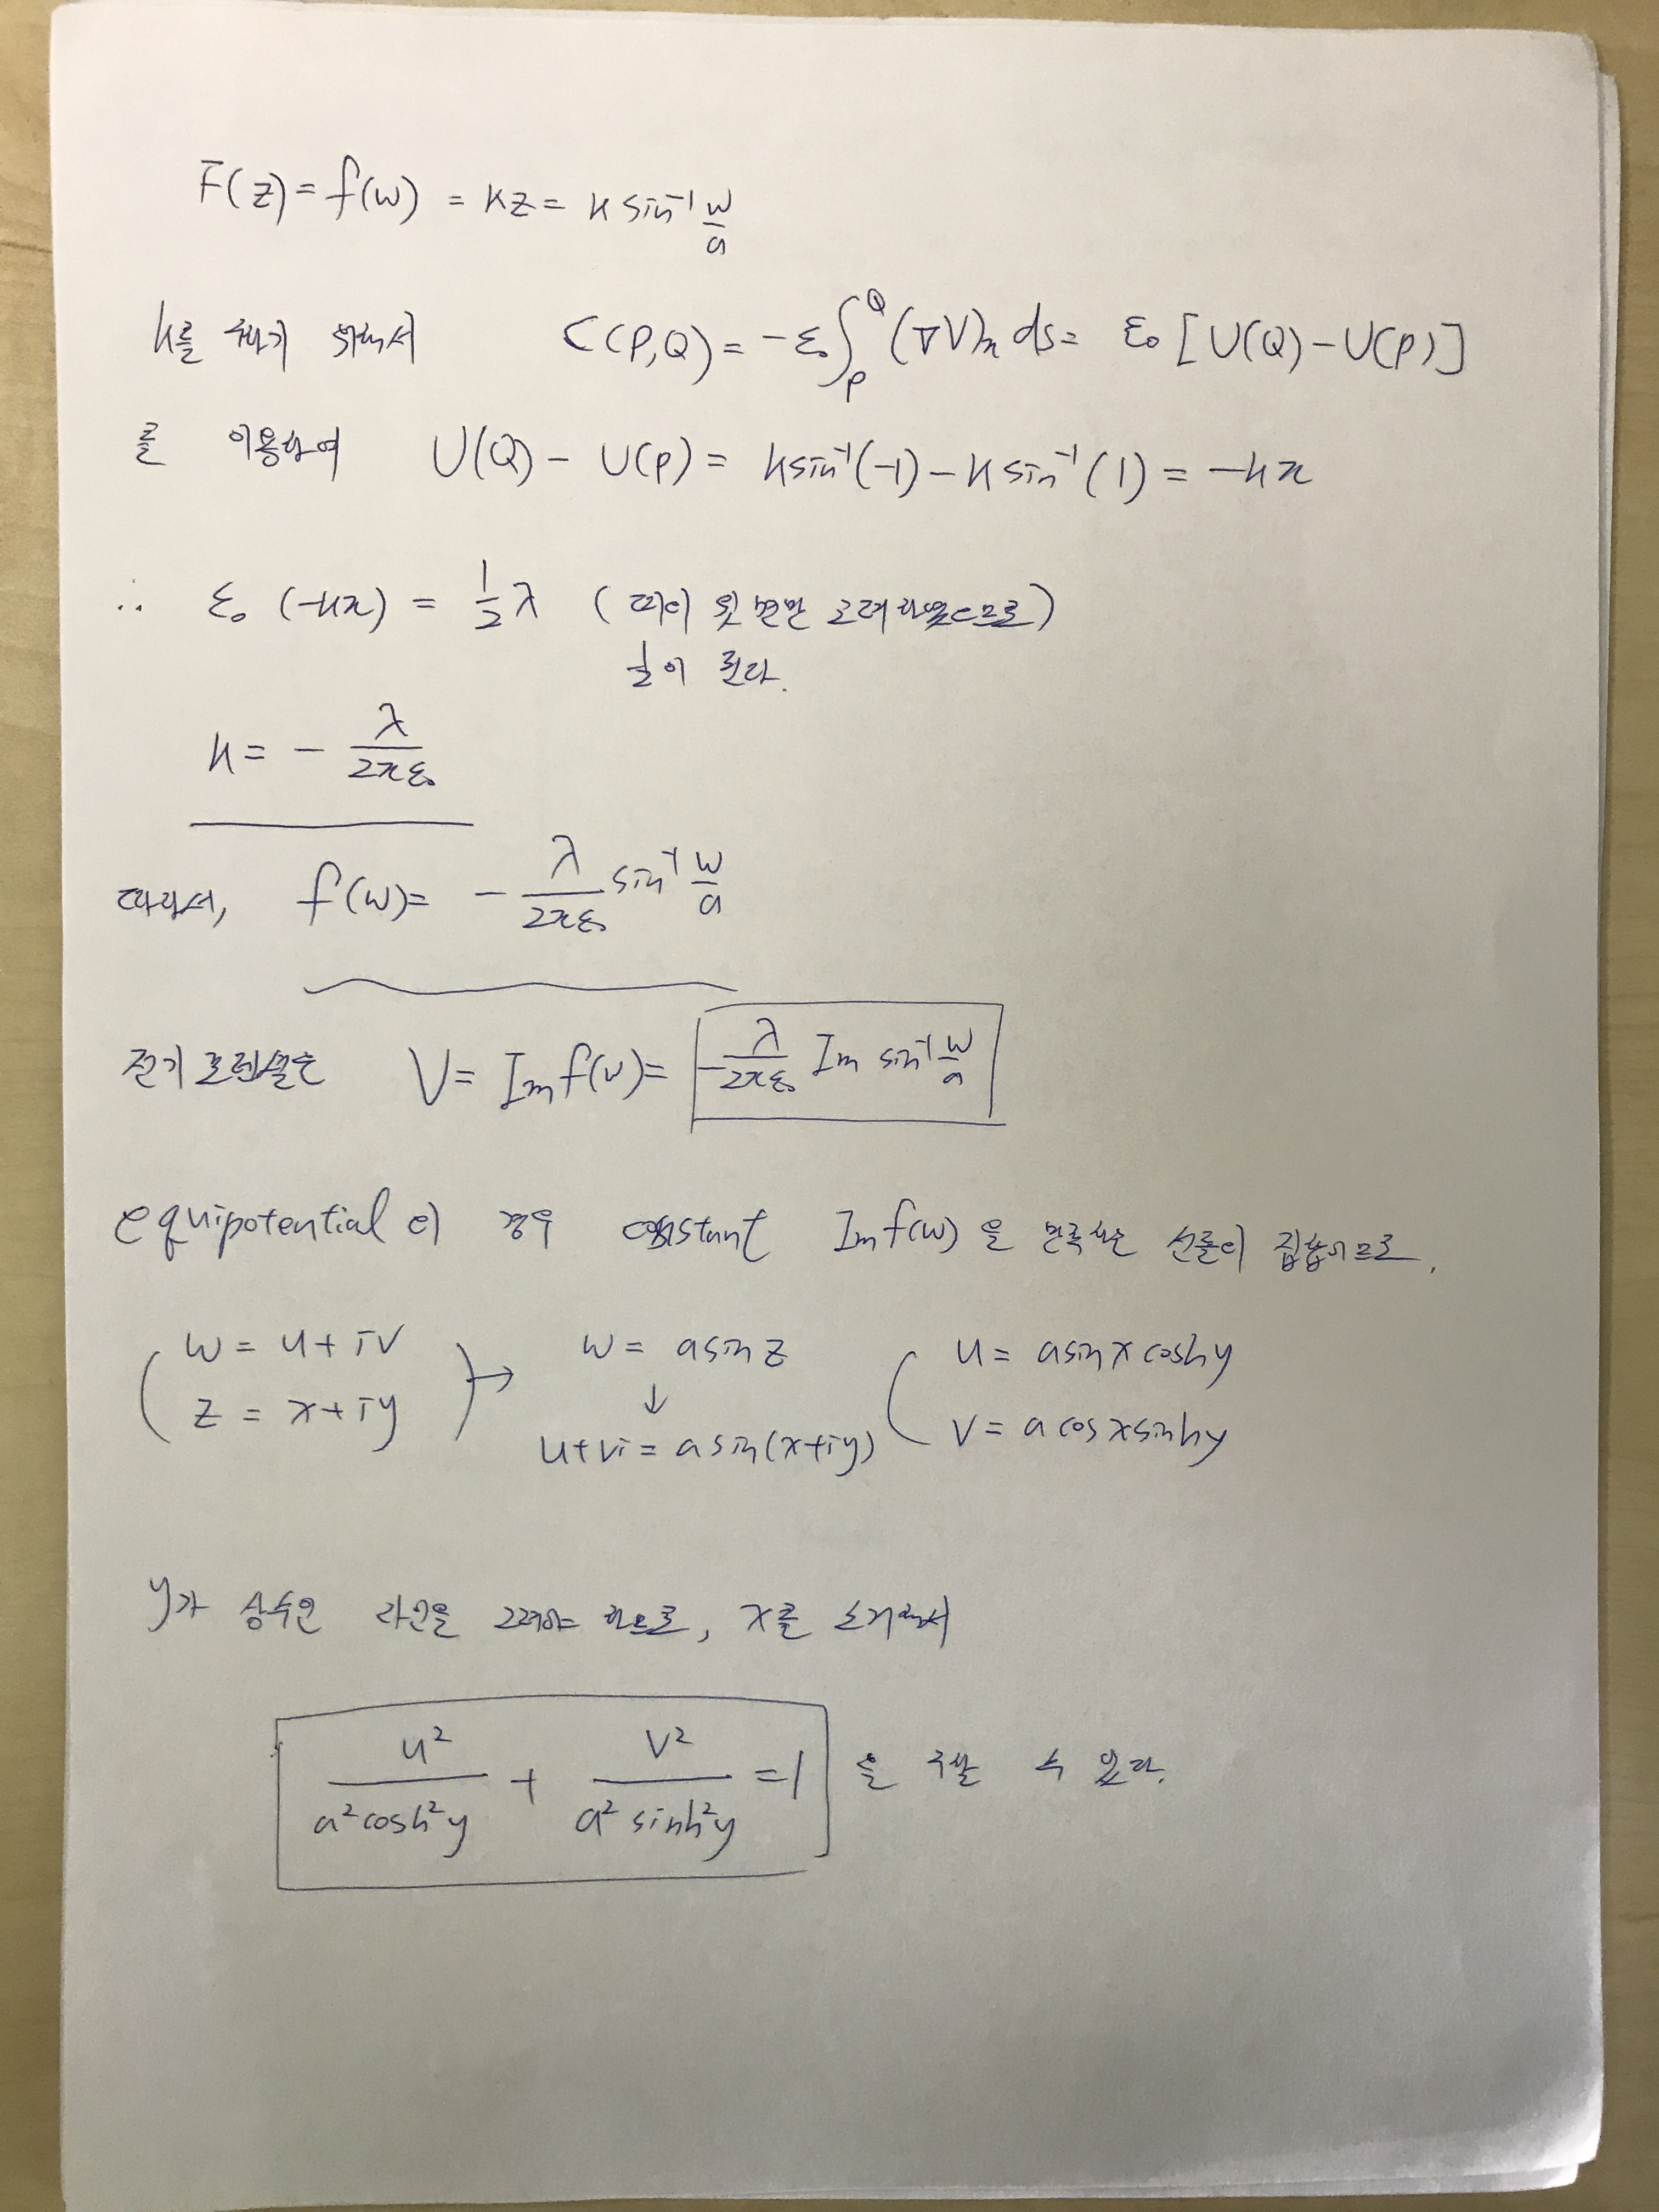 F(z) = f(w) = kz = k sin⁻¹ w/a
k를 구하기 위해서 C(P,Q) = -ε₀∫_P^Q (∇V)ₙ ds = ε₀ [U(Q) - U(P)]
를 이용하여 U(Q) - U(P) = k sin⁻¹(-1) - k sin⁻¹(1) = -kπ
∴ ε₀ (-kπ) = 1/2 λ (띠의 윗면만 고려하였으므로)
1/2이 된다.
k = - λ/2πε₀
따라서, f(w) = - λ/2πε₀ sin⁻¹ w/a
전기 포텐셜은 V = Im f(w) = - λ/2πε₀ Im sin⁻¹ w/a
equipotential의 경우 constant Im f(w)을 만족하는 선들의 집합이므로,
( w = u + iv → w = a sin z ( u = a sin x cosh y
z = x + iy ) ↓ v = a cos x sinh y
u + vi = a sin(x + iy)
y가 상수인 라인을 그려야 하므로, x를 소거해서
u²/a² cosh² y + v²/a² sinh² y = 1 을 구할 수 있다.